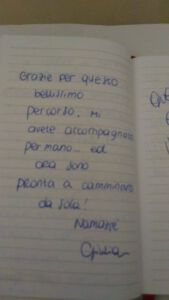 Grazie per questo
bellissimo
percorso. Mi
avete accompagnato
per mano... ed
ora sono
pronta a camminare
da sola!
Namastè
Giulia